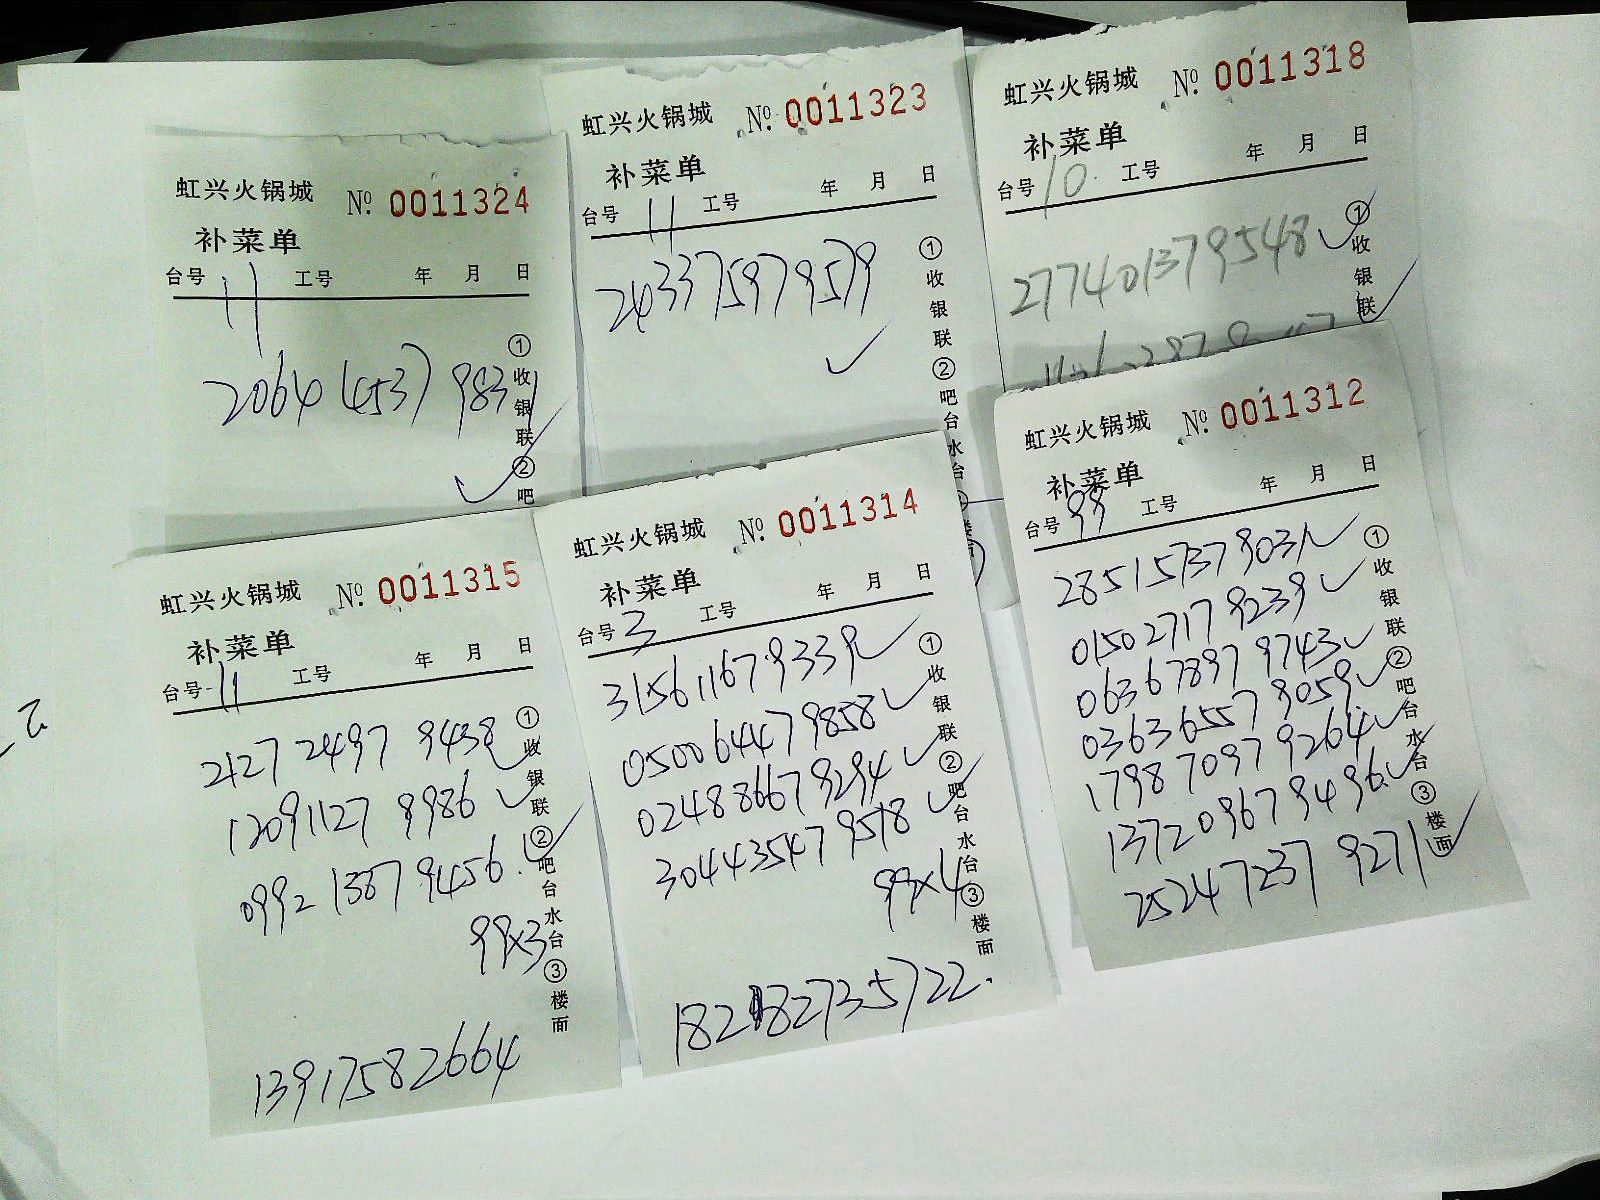 虹兴火锅城 №. 0011324
补菜单
台号 11 工号 年 月 日
2064 4537 9831
①收银联②吧
虹兴火锅城 №. 0011323
补菜单
台号 11 工号 年 月 日
243375979579
①收银联②吧台水台
虹兴火锅城 №. 0011318
补菜单
台号 10. 工号 年 月 日
277401379548
①收银联
虹兴火锅城 №. 0011315
补菜单
台号 11 工号 年 月 日
2127 2497 9438
12091127 8986
0992 1387 9456.
99×3
13917582664
①收银联②吧台水台③楼面
虹兴火锅城 №. 0011314
补菜单
台号 3 工号 年 月 日
315611679339
050064479858
024886679294
304435479578
99×4
182182735722.
①收银联②吧台水台③楼面
虹兴火锅城 №. 0011312
补菜单
台号 99 工号 年 月 日
285157379031
015027179239
063678979743
036365579059
179870979264
137209679496
252472379271
①收银联②吧台水台③楼面